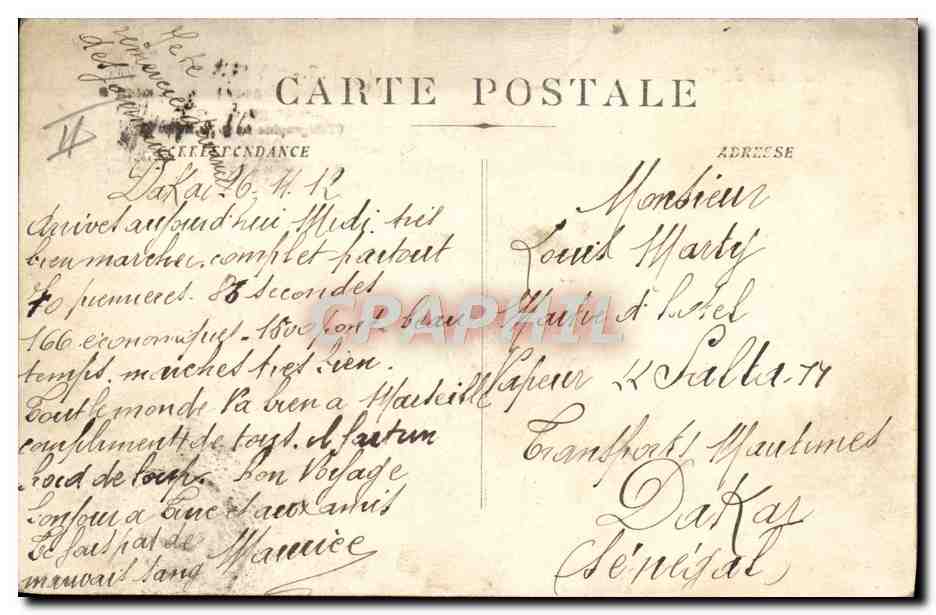 Je te
remercie
des journaux
II
CARTE POSTALE
CORRESPONDANCE
ADRESSE
Dakar 26. 4. 12
Arrivet aujourd'hui Midi. tres
bien marcher. complet partout
70 premieres. 83 secondes
166 économiques. 1500 pont beau
temps. marches tres bien.
Tout le monde Va bien a Marseille
compliments de tous. il fait un
froid de loup. Bon Voyage
bonjour a Tine et aux amis
Te fais pas de
mauvais sang Maurice
Monsieur
Louis Marty
Maitre d'hotel
Vapeur Salta
Transports Maritimes
Dakar
(Sénégal)
CPAPHIL